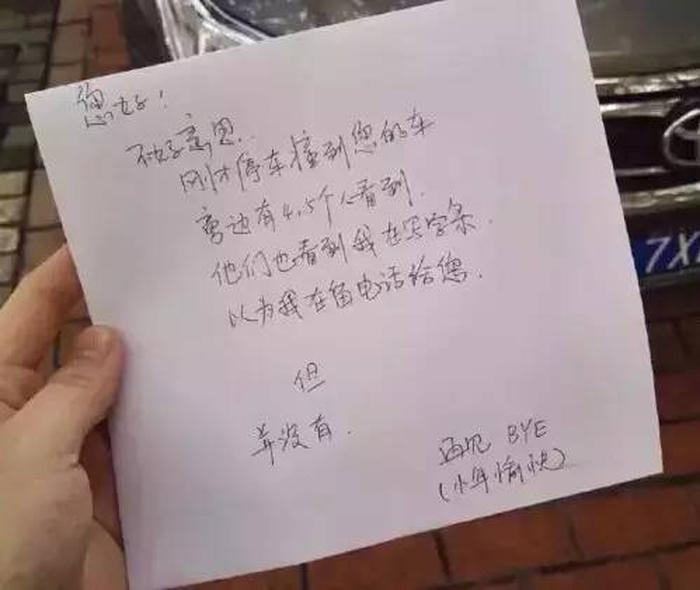 您好!
不好意思..
刚才停车撞到您的车
旁边有4.5个人看到.
他们也看到我在写字条.
以为我在留电话给您.
但
并没有.
再见 BYE
(少年愉快)
7X